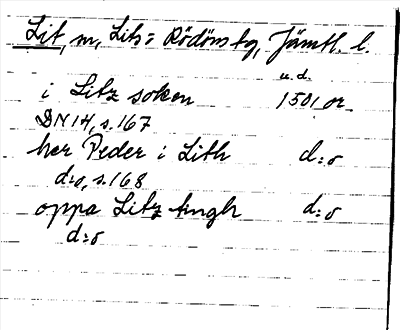 Lit, sn, Lits o Rödöns tg, Jämtl. l.
u.d.
i Litz soken 1501 or.
DN 14, s. 167
her Peder i Lith d:o
d:o, s. 168
oppa Litz tingh d:o
d:o